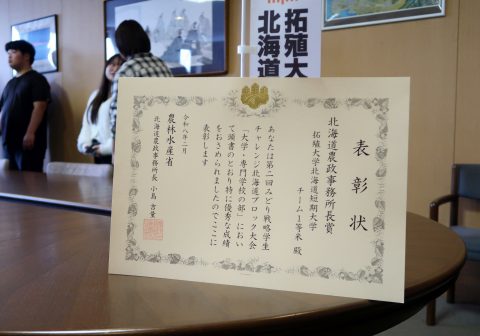 表彰状
北海道農政事務所長賞
拓殖大学北海道短期大学
チーム1等米 殿
あなたは第二回みどり戦略学生
チャレンジ北海道ブロック大会
「大学・専門学校の部」におい
て頭書のとおり特に優秀な成績
をおさめられましたのでここに
表彰します
令和八年二月
農林水産省
北海道農政事務所長 小島 吉量
拓殖大
北海道